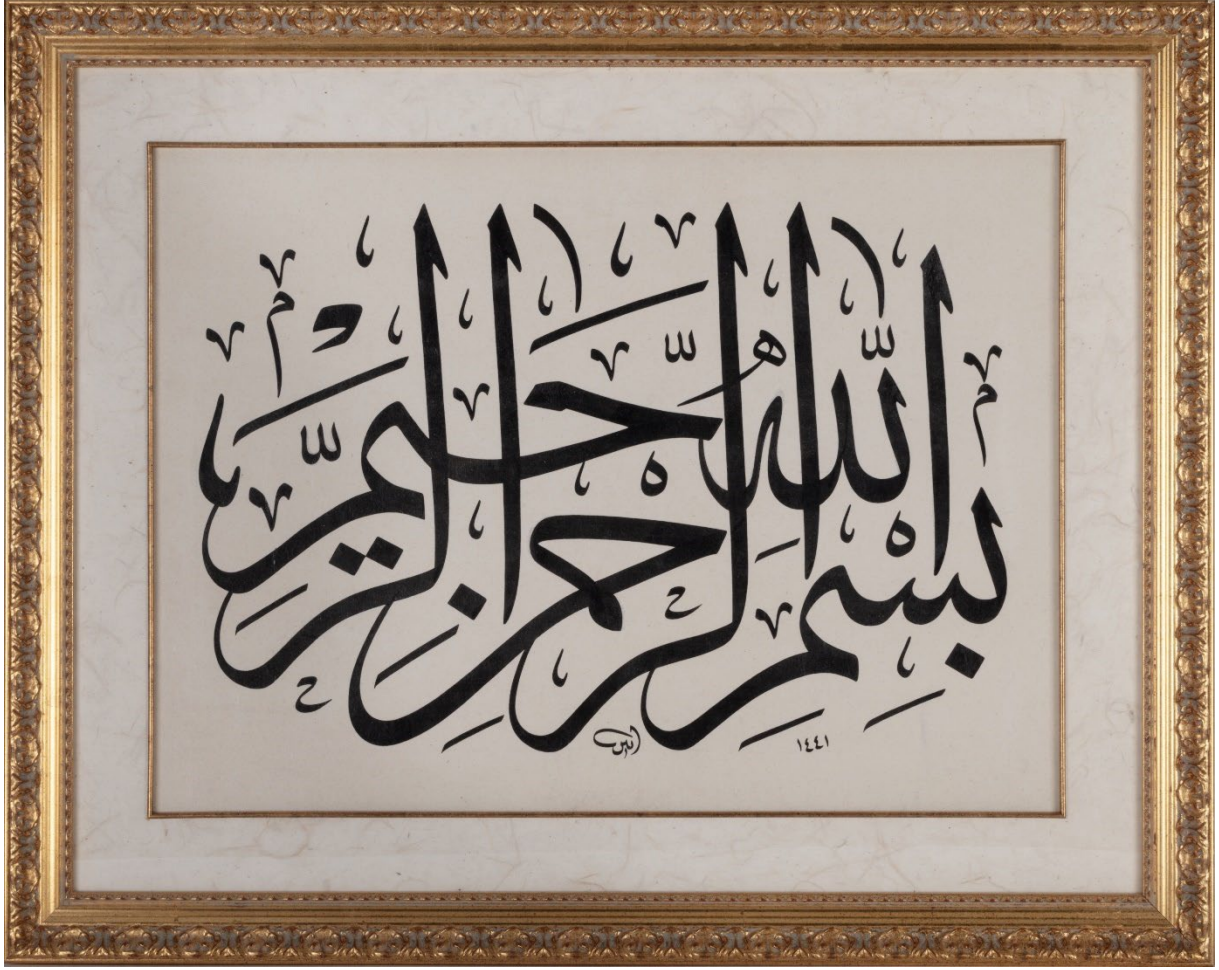 بِسْمِ اللّٰهِ الرَّحْمٰنِ الرَّحِيمِ
١٤٤١